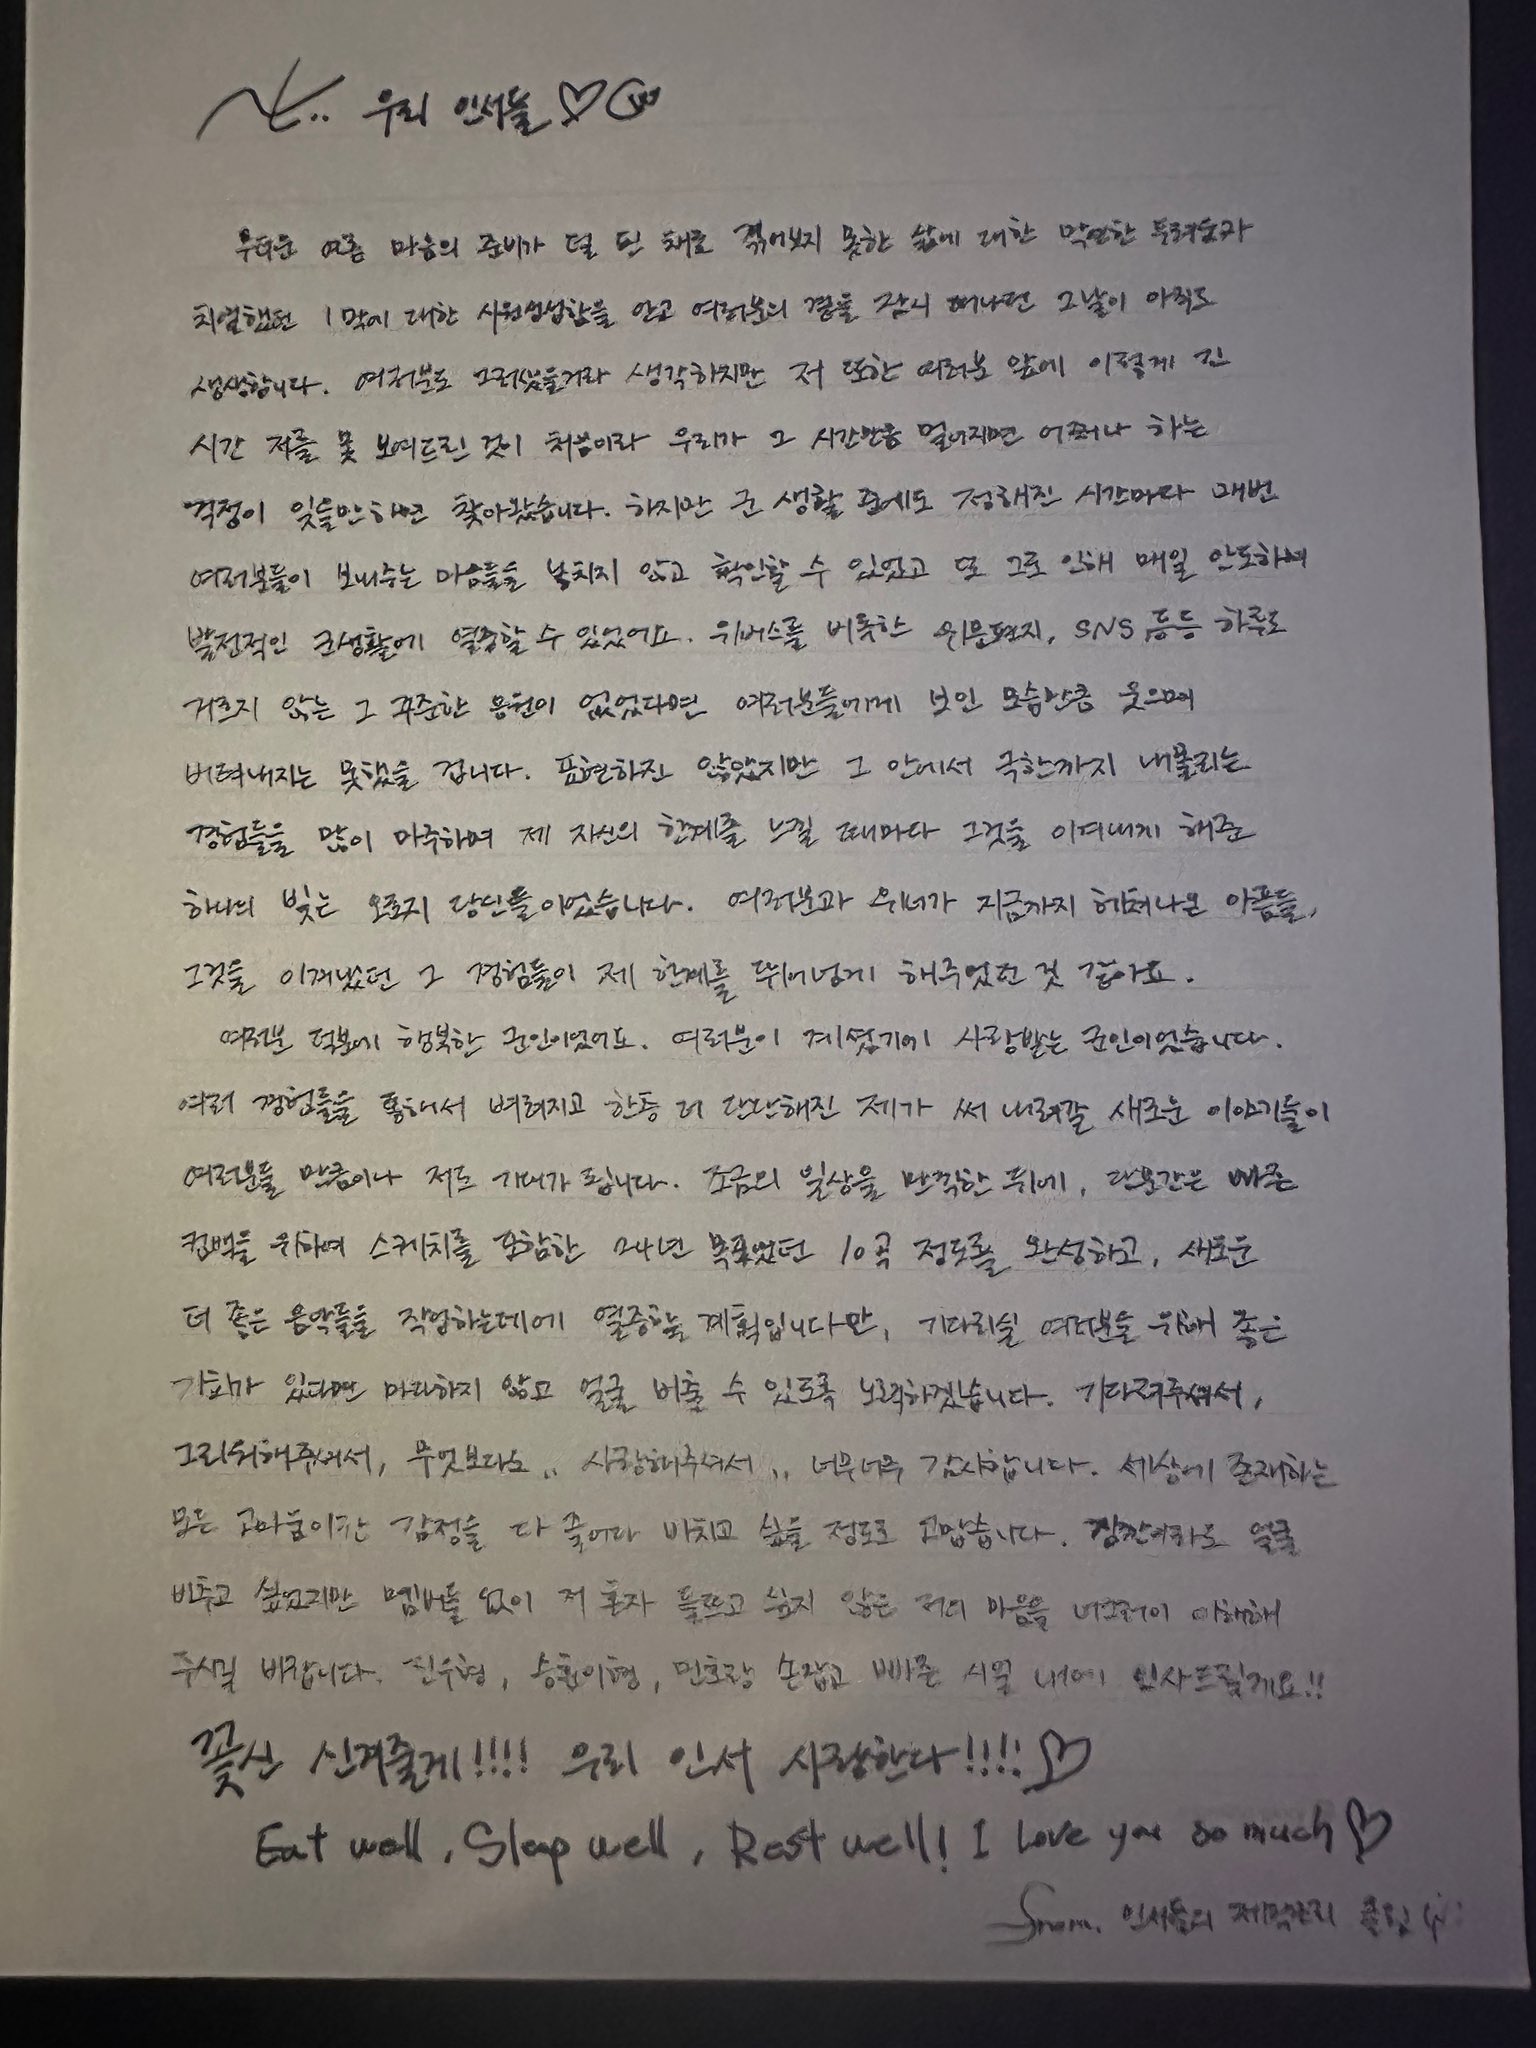 To.. 우리 인서들♡
무더운 여름 마음의 준비가 덜 된 채로 겪어보지 못한 삶에 대한 막연한 두려움과
치열했던 1막에 대한 시원섭섭함을 안고 여러분의 곁을 잠시 떠나던 그날이 아직도
생생합니다. 여러분도 그러셨을거라 생각하지만 저 또한 여러분 앞에 이렇게 긴
시간 저를 못 보여드린 것이 처음이라 우리가 그 시간만큼 멀어지면 어쩌나 하는
걱정이 잊을만하면 찾아왔습니다. 하지만 군 생활 중에도 정해진 시간마다 매번
여러분들이 보내주는 마음들을 놓치지 않고 확인할 수 있었고 또 그로 인해 매일 안도하며
발전적인 군생활에 열중할 수 있었어요. 위버스를 비롯한 위문편지, SNS 등등 하루도
거르지 않는 그 꾸준한 응원이 없었다면 여러분들에게 보인 모습만큼 웃으며
버텨내지는 못했을 겁니다. 표현하진 않았지만 그 안에서 극한까지 내몰리는
경험들을 많이 마주하며 제 자신의 한계를 느낄 때마다 그것을 이겨내게 해준
하나의 빛은 오로지 당신들이었습니다. 여러분과 위너가 지금까지 헤쳐나온 아픔들,
그것을 이겨냈던 그 경험들이 제 한계를 뛰어넘게 해주었던 것 같아요.
여러분 덕분에 행복한 군인이었어요. 여러분이 계셨기에 사랑받는 군인이었습니다.
여러 경험들을 통해서 벼려지고 한층 더 단단해진 제가 써 내려갈 새로운 이야기들이
여러분들 만큼이나 저도 기대가 됩니다. 조금의 일상을 만끽한 뒤에, 당분간은 빠른
컴백을 위하여 스케치를 포함한 24년 목표였던 10곡 정도를 완성하고, 새로운
더 좋은 음악들을 작업하는데에 열중할 계획입니다만, 기다리실 여러분을 위해 좋은
기회가 있다면 마다하지 않고 얼굴 비출 수 있도록 노력하겠습니다. 기다려주셔서,
그리워해주셔서, 무엇보다도.. 사랑해주셔서.. 너무너무 감사합니다. 세상에 존재하는
모든 고마움이란 감정을 다 줏어다 바치고 싶을 정도로 고맙습니다. 잠깐이라도 얼굴
비추고 싶었지만 멤버들 없이 저 혼자 들뜨고 싶지 않은 저의 마음을 너그러이 이해해
주시길 바랍니다. 진우형, 승훈이형, 민호랑 손잡고 빠른 시일 내에 인사드릴게요!!
꽃신 신겨줄게!!!! 우리 인서 사랑한다!!!!♡
Eat well, Sleep well, Rest well! I Love you so much♡
From. 인서들의